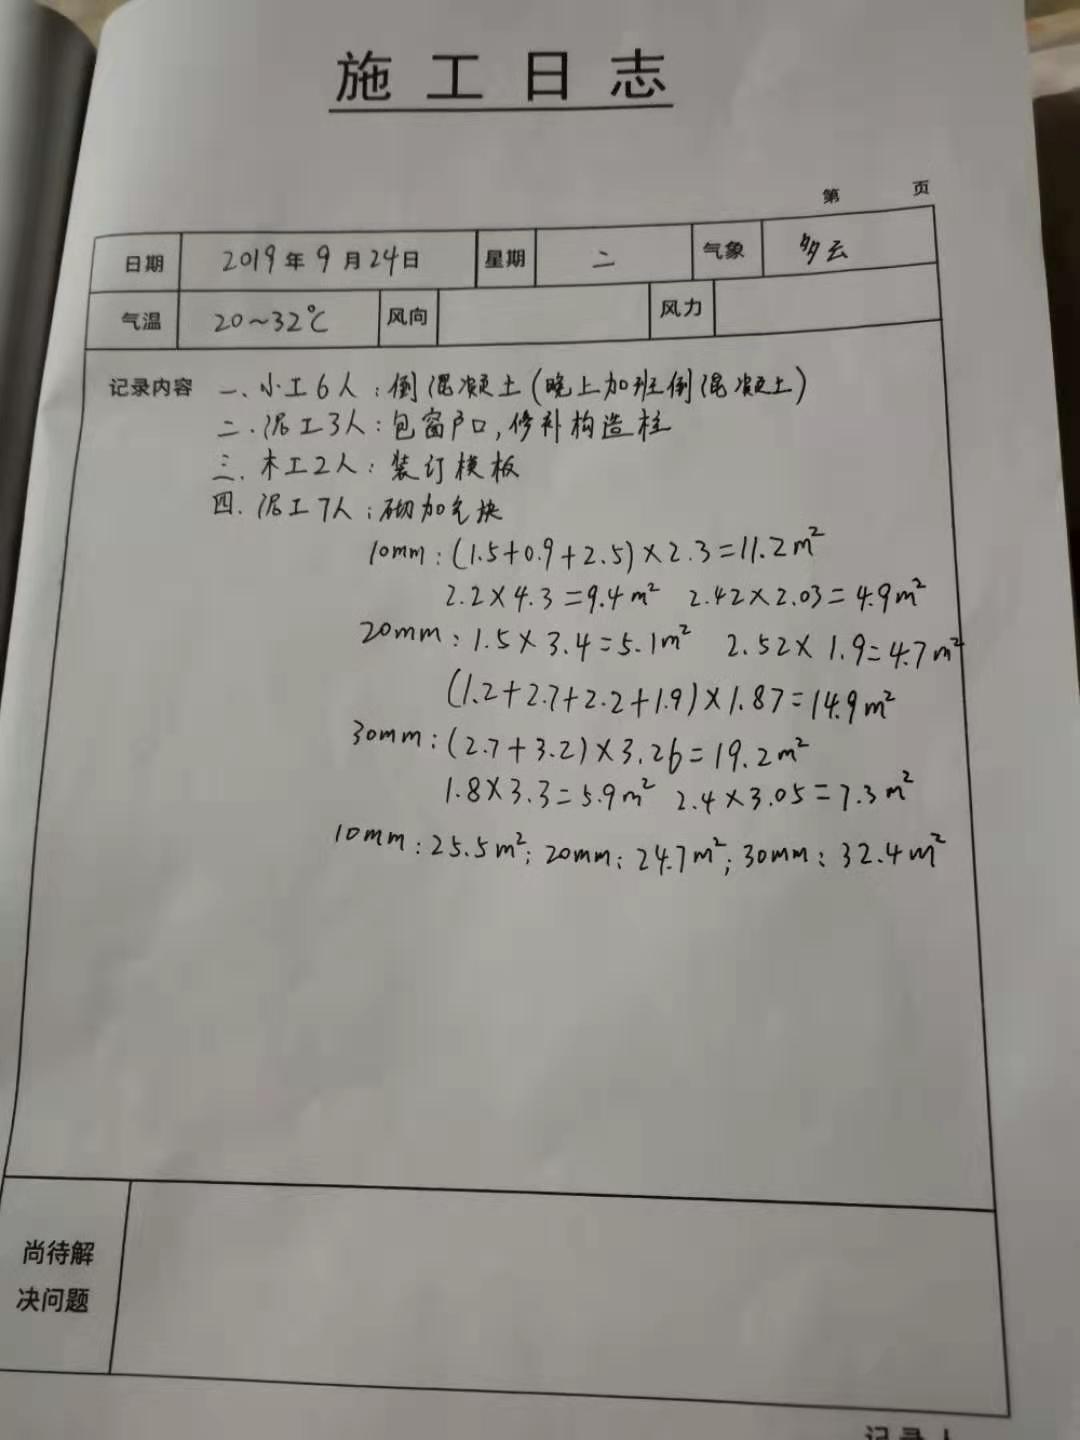 施工日志
第 页
日期 2019年9月24日 星期 二 气象 多云
气温 20~32℃ 风向 风力
记录内容 一、小工6人：倒混凝土(晚上加班倒混凝土)
二、泥工3人：包窗户口，修补构造柱
三、木工2人：装订模板
四、泥工7人：砌加气块
10mm：(1.5+0.9+2.5)×2.3=11.2m²
2.2×4.3=9.4m² 2.42×2.03=4.9m²
20mm：1.5×3.4=5.1m² 2.52×1.9=4.7m²
(1.2+2.7+2.2+1.9)×1.87=14.9m²
30mm：(2.7+3.2)×3.26=19.2m²
1.8×3.3=5.9m² 2.4×3.05=7.3m²
10mm：25.5m²；20mm：24.7m²；30mm：32.4m²
尚待解
决问题
记录人